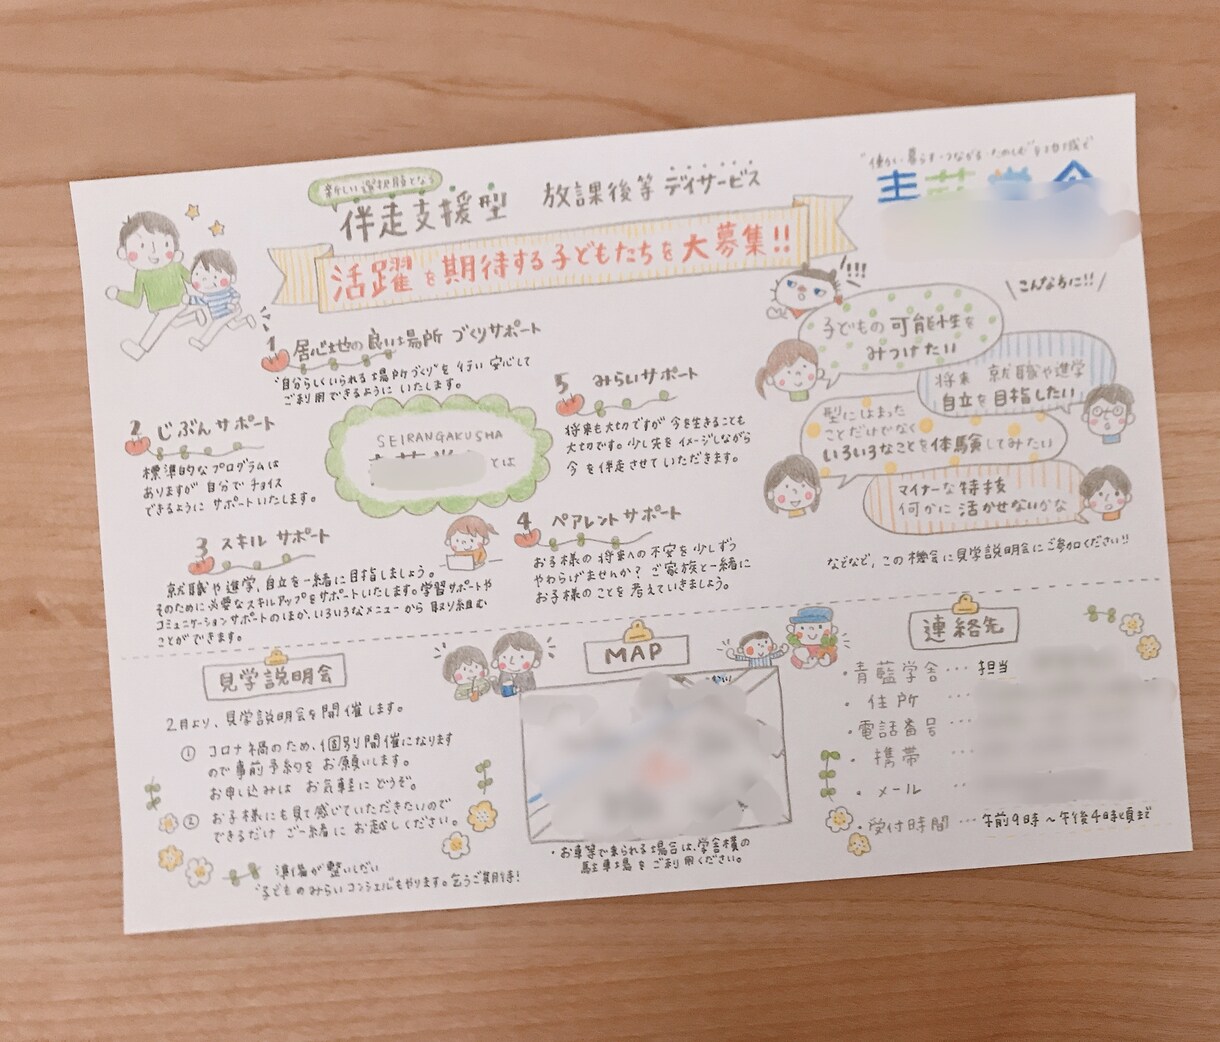 新しい選択肢となる
伴走支援型 放課後等デイサービス
活躍を期待する子どもたちを大募集!!
1 居心地の良い場所づくりサポート
"自分らしくいられる場所づくり"を行い安心して
ご利用できるようにいたします。
2 じぶんサポート
標準的なプログラムは
ありますが自分でチョイス
できるようにサポートいたします。
3 スキルサポート
就職や進学、自立を一緒に目指しましょう。
そのために必要なスキルアップをサポートいたします。学習サポートや
コミュニケーションサポートのほか、いろいろなメニューから取り組む
ことができます。
SEIRANGAKUSHA
とは
4 ペアレントサポート
お子様の将来への不安を少しずつ
やわらげませんか?ご家族と一緒に
お子様のことを考えていきましょう。
5 みらいサポート
将来も大切ですが今を生きることも
大切です。少し先をイメージしながら
今を伴走させていただきます。
こんな方に!!
!!!
子どもの可能性を
みつけたい
将来 就職や進学
自立を目指したい
型にはまった
ことだけでなく
いろいろなことを体験してみたい
マイナーな特技
何かに活かせないかな
などなど、この機会に見学説明会にご参加ください!!
見学説明会
2月より、見学説明会を開催します。
① コロナ禍のため、個別開催になります
ので事前予約をお願いします。
お申し込みはお気軽にどうぞ。
② お子様にも見て感じていただきたいので
できるだけご一緒にお越しください。
準備が整いしだい
"子どものみらいコンシェル"もやります。乞うご期待!
MAP
・お車等で来られる場合は、学舎横の
駐車場をご利用ください。
連絡先
・青藍学舎…担当
・住所…
・電話番号…
・携帯…
・メール…
・受付時間…午前9時~午後4時頃まで